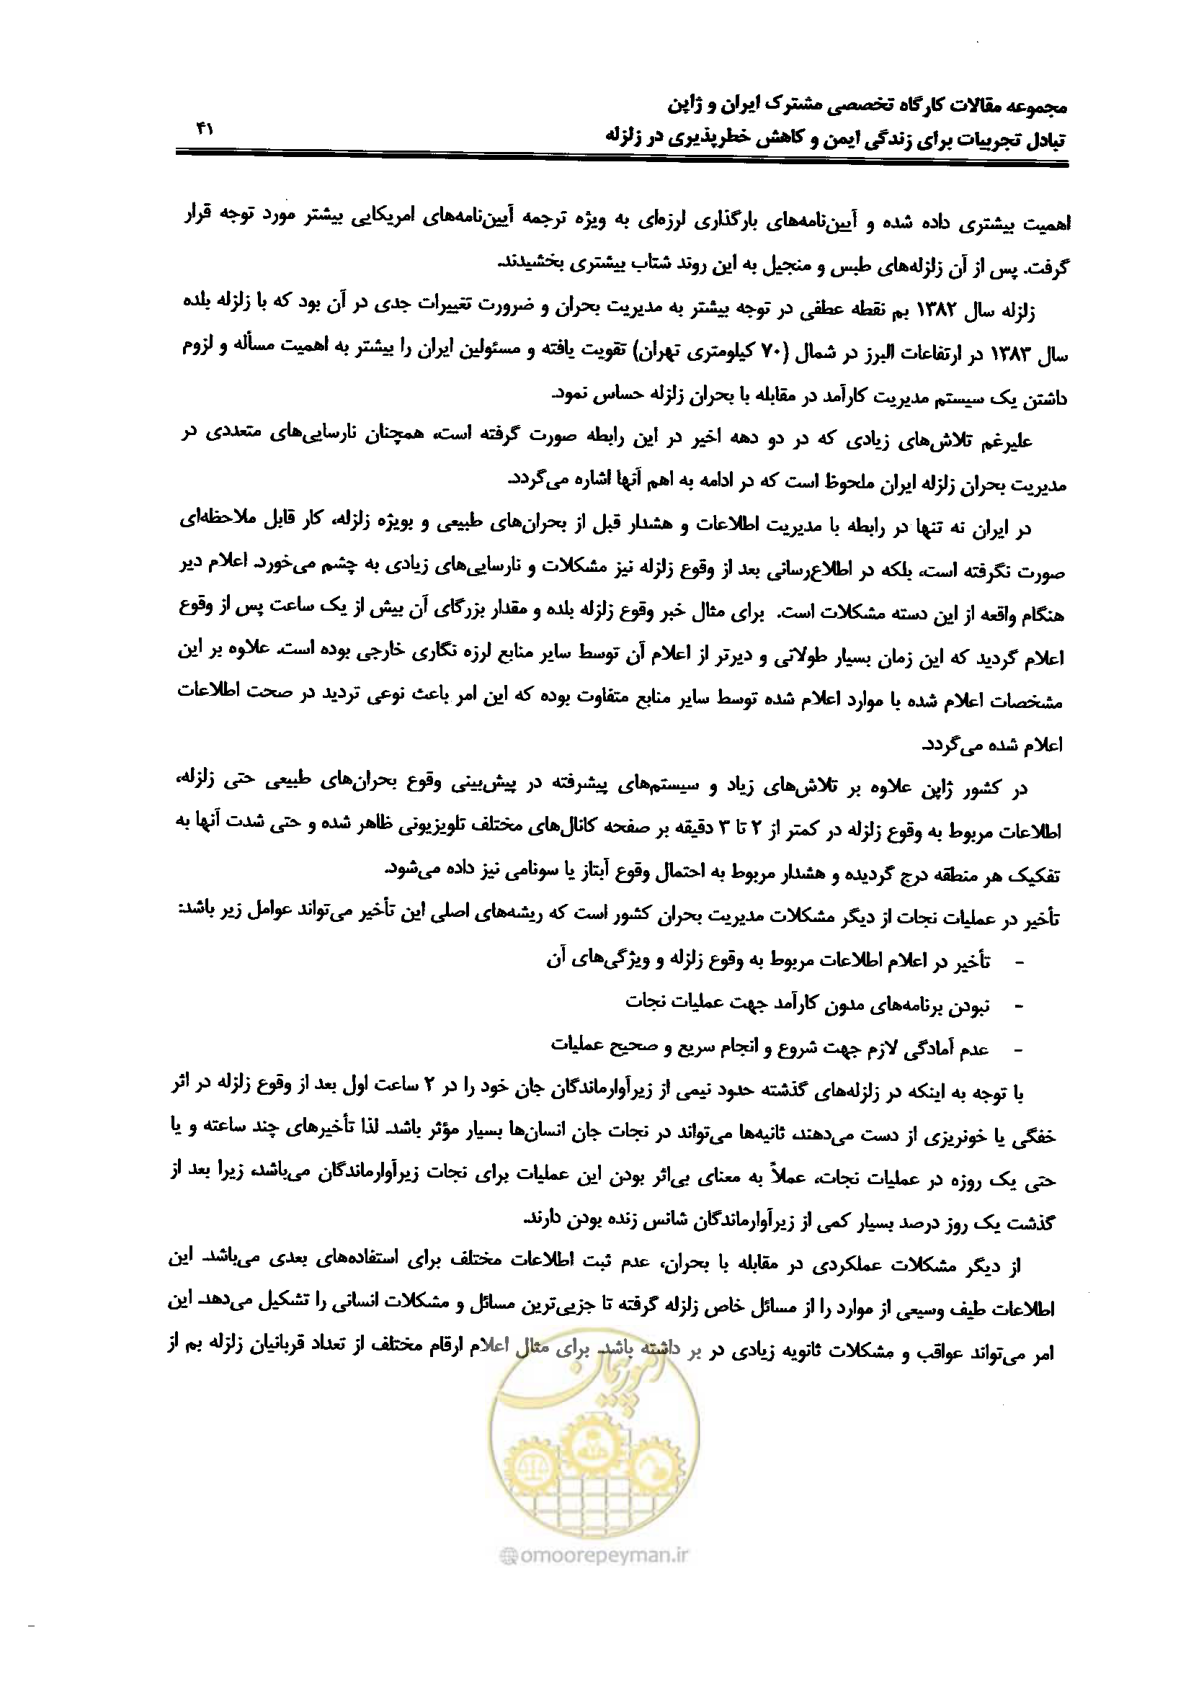 مجموعه مقالات کارگاه تخصصی مشترک ایران و ژاپن
تبادل تجربیات برای زندگی ایمن و کاهش خطرپذیری در زلزله
۴۱
اهمیت بیشتری داده شده و آیین‌نامه‌های بارگذاری لرزه‌ای به ویژه ترجمه آیین‌نامه‌های امریکایی بیشتر مورد توجه قرار
گرفت. پس از آن زلزله‌های طبس و منجیل به این روند شتاب بیشتری بخشیدند.
زلزله سال ۱۳۸۲ بم نقطه عطفی در توجه بیشتر به مدیریت بحران و ضرورت تغییرات جدی در آن بود که با زلزله بلده
سال ۱۳۸۳ در ارتفاعات البرز در شمال (۷۰ کیلومتری تهران) تقویت یافته و مسئولین ایران را بیشتر به اهمیت مسأله و لزوم
داشتن یک سیستم مدیریت کارآمد در مقابله با بحران زلزله حساس نمود.
علیرغم تلاش‌های زیادی که در دو دهه اخیر در این رابطه صورت گرفته است، همچنان نارسایی‌های متعددی در
مدیریت بحران زلزله ایران ملحوظ است که در ادامه به اهم آنها اشاره می‌گردد.
در ایران نه تنها در رابطه با مدیریت اطلاعات و هشدار قبل از بحران‌های طبیعی و بویژه زلزله، کار قابل ملاحظه‌ای
صورت نگرفته است، بلکه در اطلاع‌رسانی بعد از وقوع زلزله نیز مشکلات و نارسایی‌های زیادی به چشم می‌خورد. اعلام دیر
هنگام واقعه از این دسته مشکلات است. برای مثال خبر وقوع زلزله بلده و مقدار بزرگای آن بیش از یک ساعت پس از وقوع
اعلام گردید که این زمان بسیار طولانی و دیرتر از اعلام آن توسط سایر منابع لرزه نگاری خارجی بوده است. علاوه بر این
مشخصات اعلام شده با موارد اعلام شده توسط سایر منابع متفاوت بوده که این امر باعث نوعی تردید در صحت اطلاعات
اعلام شده می‌گردد.
در کشور ژاپن علاوه بر تلاش‌های زیاد و سیستم‌های پیشرفته در پیش‌بینی وقوع بحران‌های طبیعی حتی زلزله،
اطلاعات مربوط به وقوع زلزله در کمتر از ۲ تا ۳ دقیقه بر صفحه کانال‌های مختلف تلویزیونی ظاهر شده و حتی شدت آنها به
تفکیک هر منطقه درج گردیده و هشدار مربوط به احتمال وقوع آبتاز یا سونامی نیز داده می‌شود.
تأخیر در عملیات نجات از دیگر مشکلات مدیریت بحران کشور است که ریشه‌های اصلی این تأخیر می‌تواند عوامل زیر باشد:
- تأخیر در اعلام اطلاعات مربوط به وقوع زلزله و ویژگی‌های آن
- نبودن برنامه‌های مدون کارآمد جهت عملیات نجات
- عدم آمادگی لازم جهت شروع و انجام سریع و صحیح عملیات
با توجه به اینکه در زلزله‌های گذشته حدود نیمی از زیرآوارماندگان جان خود را در ۲ ساعت اول بعد از وقوع زلزله در اثر
خفگی یا خونریزی از دست می‌دهند، ثانیه‌ها می‌تواند در نجات جان انسان‌ها بسیار مؤثر باشد. لذا تأخیرهای چند ساعته و یا
حتی یک روزه در عملیات نجات، عملاً به معنای بی‌اثر بودن این عملیات برای نجات زیرآوارماندگان می‌باشد، زیرا بعد از
گذشت یک روز درصد بسیار کمی از زیرآوارماندگان شانس زنده بودن دارند.
از دیگر مشکلات عملکردی در مقابله با بحران، عدم ثبت اطلاعات مختلف برای استفاده‌های بعدی می‌باشد. این
اطلاعات طیف وسیعی از موارد را از مسائل خاص زلزله گرفته تا جزیی‌ترین مسائل و مشکلات انسانی را تشکیل می‌دهد. این
امر می‌تواند عواقب و مشکلات ثانویه زیادی در بر داشته باشد. برای مثال اعلام ارقام مختلف از تعداد قربانیان زلزله بم از
امور پیمان
omoorepeyman.ir